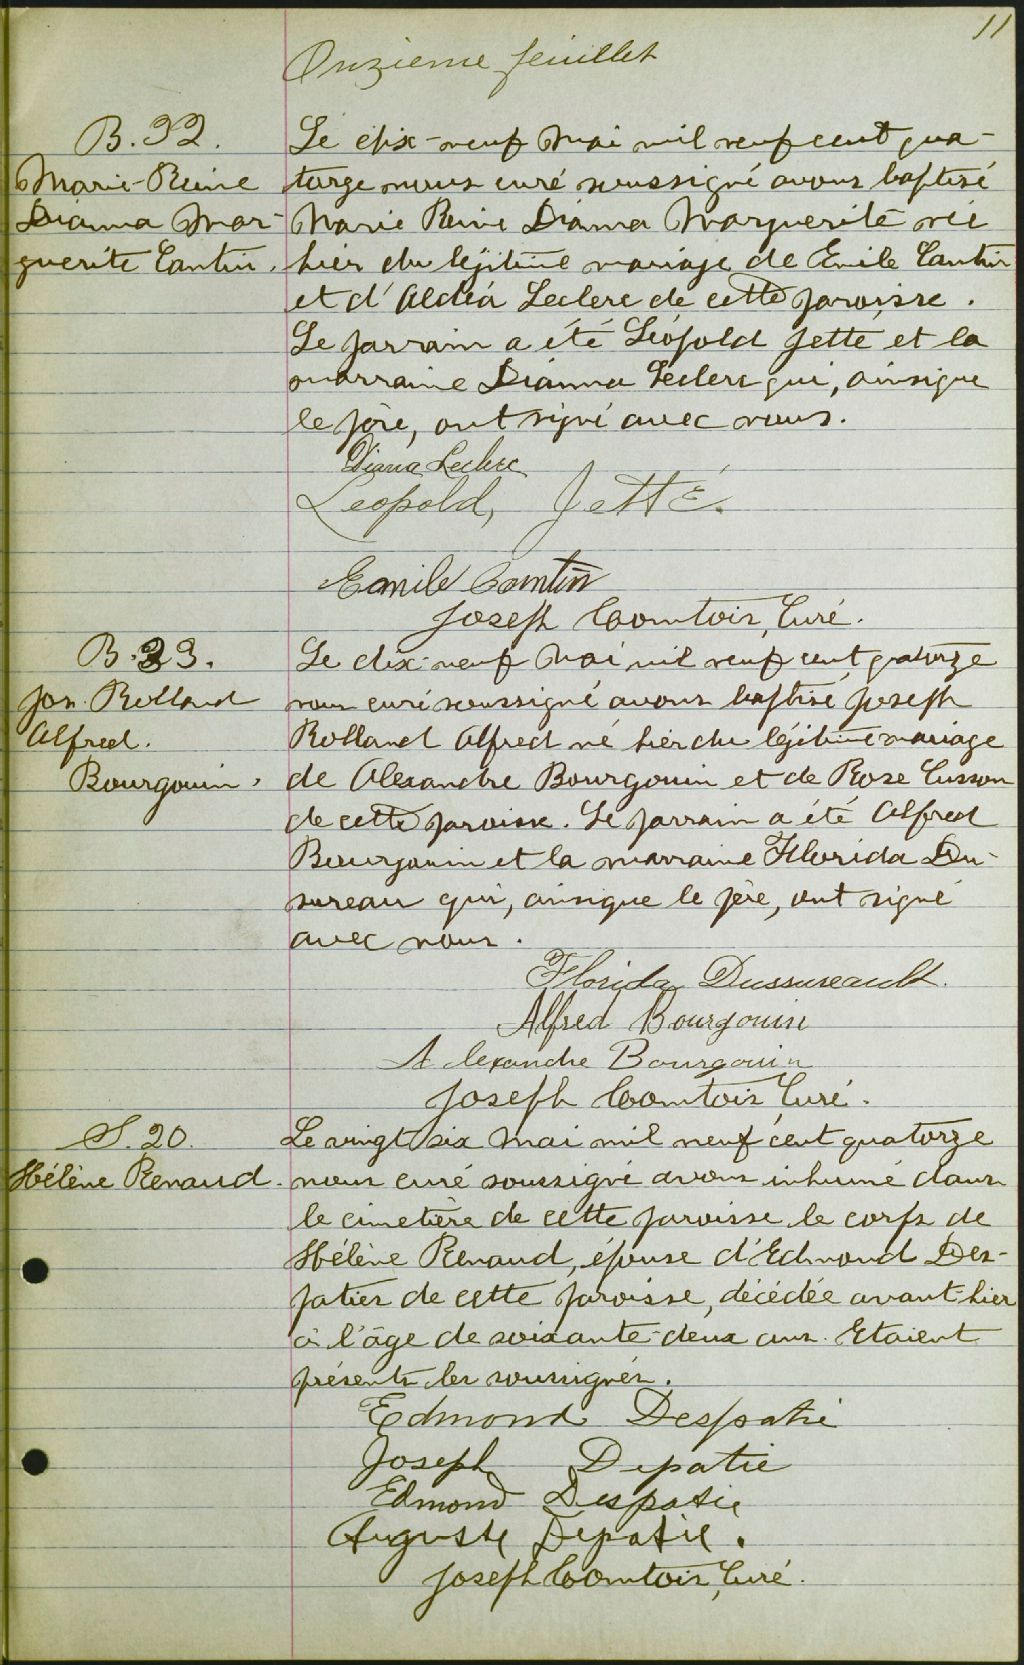 11
Onzième feuillet
B. 32.
Marie-Reine
Dianna Mar-
guerite Cantin.
Le dix-neuf mai mil neuf cent qua-
torze nous curé soussigné avons baptisé
Marie Reine Dianna Marguerite née
hier du légitime mariage de Emile Cantin
et d'Aldéa Leclerc de cette paroisse.
Le parrain a été Léopold Jetté et la
marraine Dianna Leclerc qui, ainsi que
le père, ont signé avec nous.
Diana Leclerc
Leopold, Jetté.
Emile Cantin
Joseph Comtois, Curé.
B. 33.
Jos. Rolland
Alfred.
Bourgouin.
Le dix-neuf mai mil neuf cent quatorze
nous curé soussigné avons baptisé Joseph
Rolland Alfred né hier du légitime mariage
de Alexandre Bourgouin et de Rose Cusson
de cette paroisse. Le parrain a été Alfred
Bourgouin et la marraine Florida Du-
sureau qui, ainsi que le père, ont signé
avec nous.
Florida Dussureault.
Alfred Bourgouin
Alexandre Bourgouin
Joseph Comtois Curé.
S. 20.
Hélène Renaud.
Le vingt six mai mil neuf cent quatorze
nous curé soussigné avons inhumé dans
le cimetière de cette paroisse le corps de
Hélène Renaud, épouse d'Edmond Des-
patier de cette paroisse, décédée avant-hier
à l'âge de soixante-deux ans. Etaient
présents les soussignés.
Edmond Despatie
Joseph Depatie
Edmond Despatie
Auguste Depatie.
Joseph Comtois, Curé.